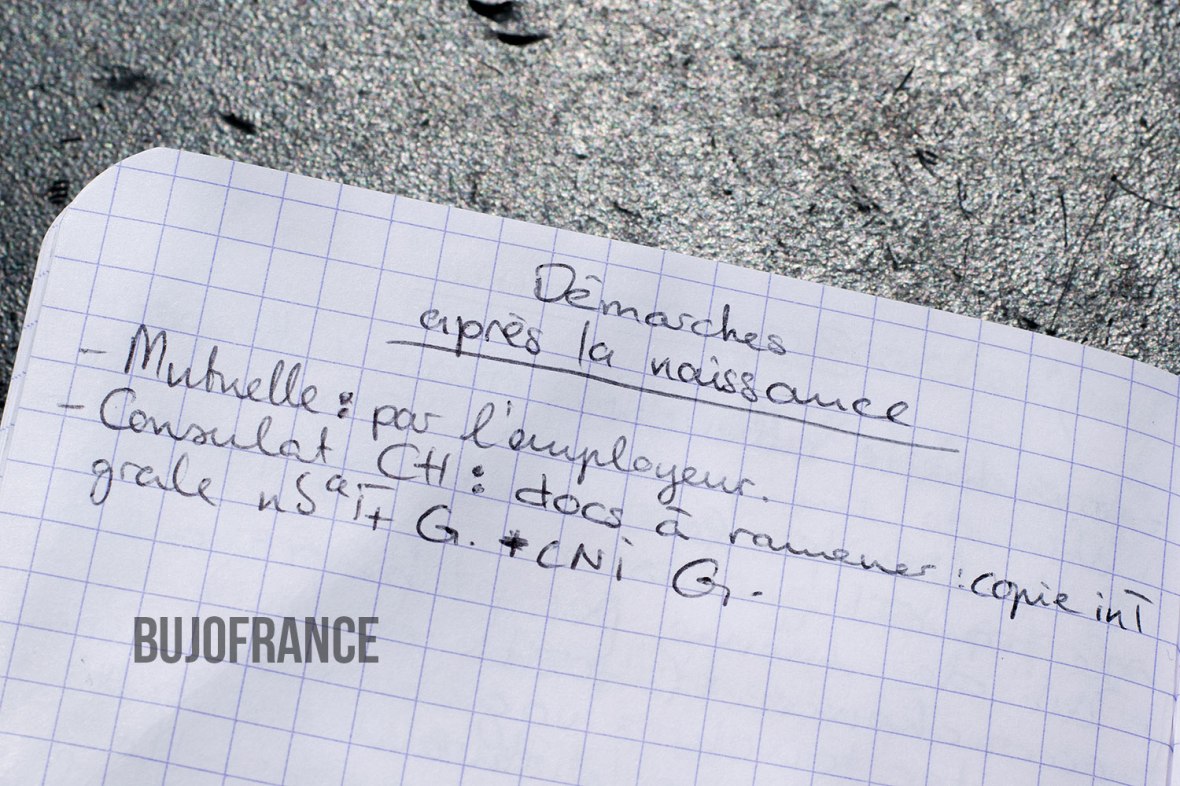 Démarches
après la naissance
- Mutuelle : par l'employeur.
- Consulat CH : docs à ramener : copie int
grale nS a it G. + CNi G.
BUJOFRANCE